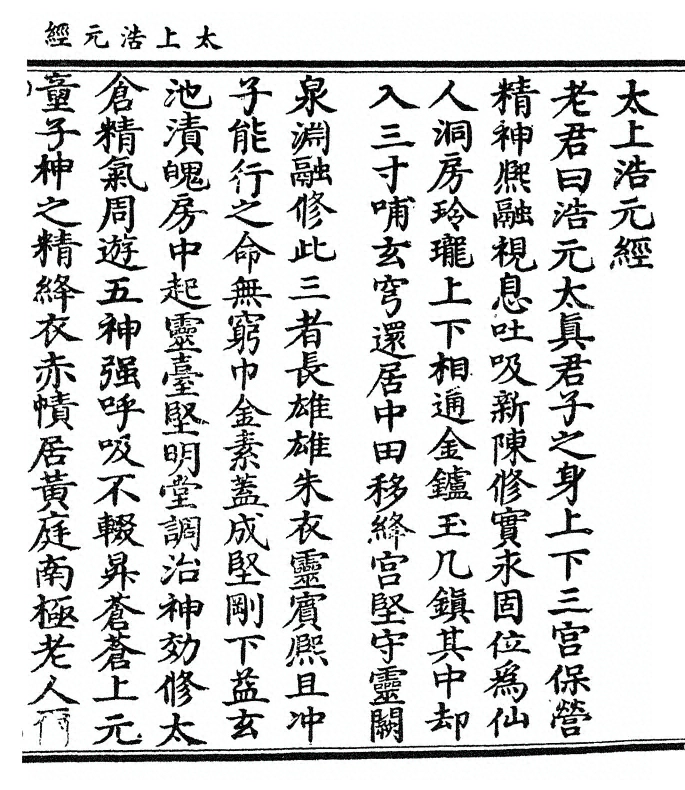 太上浩元經
太上浩元經
老君曰浩元太眞君子之身上下三宮保營
精神熈融視息吐吸新陳修實永固位爲仙
人洞房玲瓏上下相通金鑪玉几鎭其中却
入三寸哺玄穹還居中田移絳宮堅守靈關
泉淵融修此三者長雄雄朱衣靈賓熈且冲
子能行之命無窮巾金素蓋成堅剛下益玄
池漬魄房中起靈臺堅明堂調治神効修太
倉精氣周遊五神强呼吸不輟昇蒼蒼上元
童子神之精絳衣赤幘居黃庭南極老人